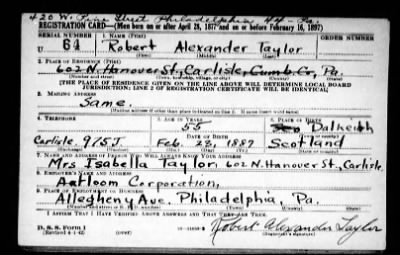 420 W. Price Street Philadelphia 44 - Pa.
REGISTRATION CARD—(Men born on or after April 28, 1877 and on or before February 16, 1897)
SERIAL NUMBER 1. NAME (Print) ORDER NUMBER
U 64 Robert Alexander Taylor
(First) (Middle) (Last)
2. PLACE OF RESIDENCE (Print)
602 N. Hanover St., Carlisle, Cumb. Co., Pa.
(Number and street) (Town, township, village, or city) (County) (State)
[THE PLACE OF RESIDENCE GIVEN ON THE LINE ABOVE WILL DETERMINE LOCAL BOARD
JURISDICTION; LINE 2 OF REGISTRATION CERTIFICATE WILL BE IDENTICAL]
3. MAILING ADDRESS
Same.
[Mailing address if other than place indicated on line 2. If same insert word same]
4. TELEPHONE 5. AGE IN YEARS 6. PLACE OF BIRTH
55 Dalkeith
DATE OF BIRTH
Carlisle 915J. Feb. 22, 1887 Scotland
7. NAME AND ADDRESS OF PERSON WHO WILL ALWAYS KNOW YOUR ADDRESS
Mrs Isabella Taylor, 602 N. Hanover St., Carlisle.
8. EMPLOYER'S NAME AND ADDRESS
Artloom Corporation,
9. PLACE OF EMPLOYMENT OR BUSINESS
Allegheny Ave. Philadelphia, Pa.
I AFFIRM THAT I HAVE VERIFIED ABOVE ANSWERS AND THAT THEY ARE TRUE.
D. S. S. Form 1 Robert Alexander Taylor
(Revised 4-1-42) (over) (Registrant's signature)